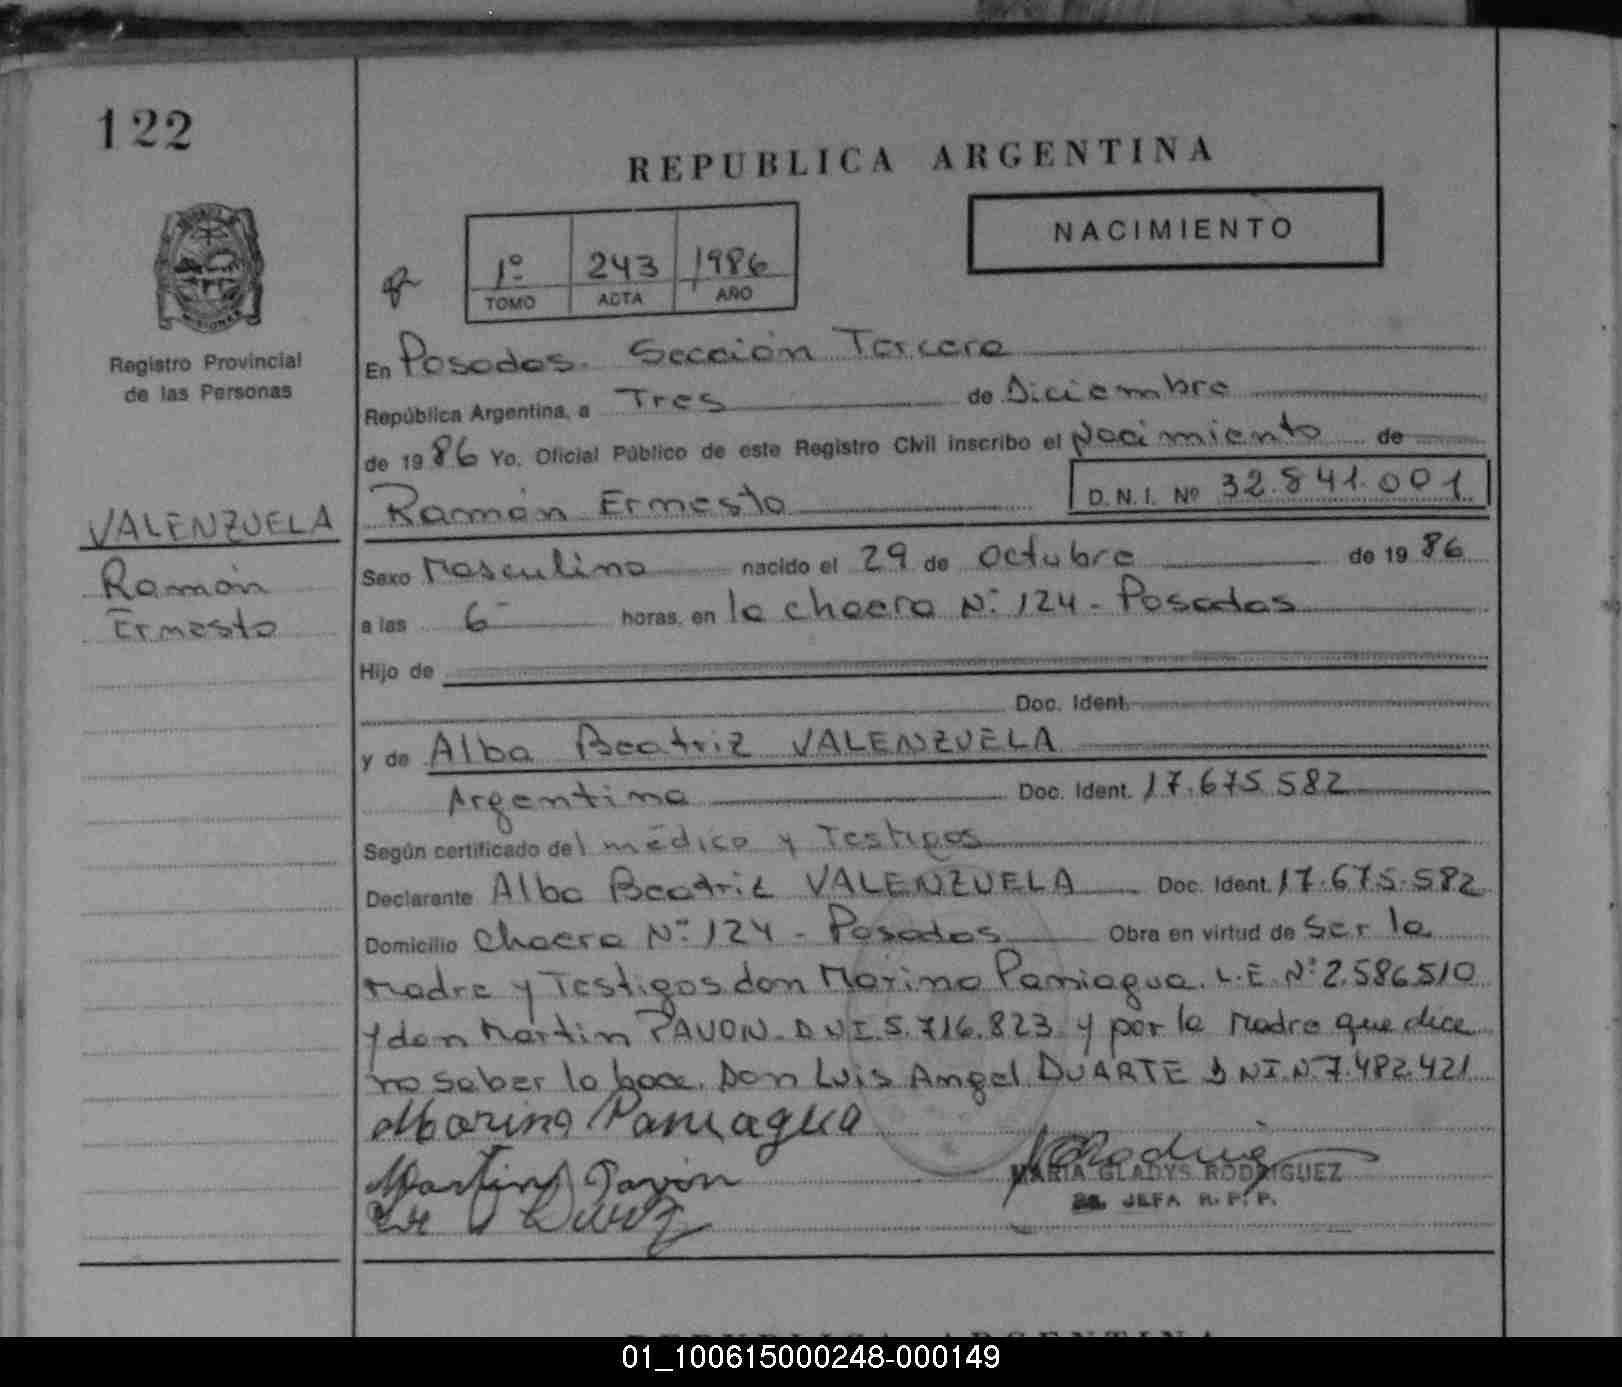 122
REPUBLICA ARGENTINA
NACIMIENTO
1º 243 1986
TOMO ACTA AÑO
MISIONES
Registro Provincial
de las Personas
En Posadas. Sección Tercera
República Argentina, a Tres de Diciembre
de 1986 Yo, Oficial Público de este Registro Civil inscribo el Nacimiento de
Ramón Ernesto D.N.I. Nº 32.841.001
VALENZUELA
Ramón
Ernesto
Sexo Masculino nacido el 29 de Octubre de 1986
a las 6 horas, en la chacra Nº 124 - Posadas
Hijo de
Doc. Ident.
y de Alba Beatriz VALENZUELA
Argentina Doc. Ident. 17.675.582
Según certificado del médico y Testigos
Declarante Alba Beatriz VALENZUELA Doc. Ident. 17.675.582
Domicilio Chacra Nº 124 - Posadas Obra en virtud de Ser la
Madre y Testigos don Marino Paniagua. L.E. Nº 2.586.510
y don Martin PAVON. DNI. 5.716.823 y por la Madre que dice
no saber lo hace. Don Luis Angel DUARTE DNI.N.7.482.421
Marino Paniagua
Martin Pavon
MARIA GLADYS RODRIGUEZ
JEFA R.P.P.
REPUBLICA ARGENTINA
01_100615000248-000149